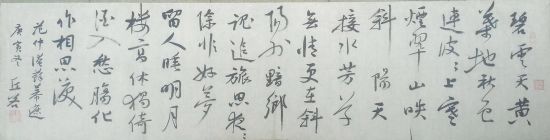 碧雲天黄
葉地秋色
連波々上寒
煙翠山映
斜陽天
接水芳草
無情更在斜
陽外黯鄉
魂追旅思夜々
除非好夢
留人睡明月
樓高休獨倚
酒入愁腸化
作相思淚
范仲淹蘇幕遮
庚寅冬